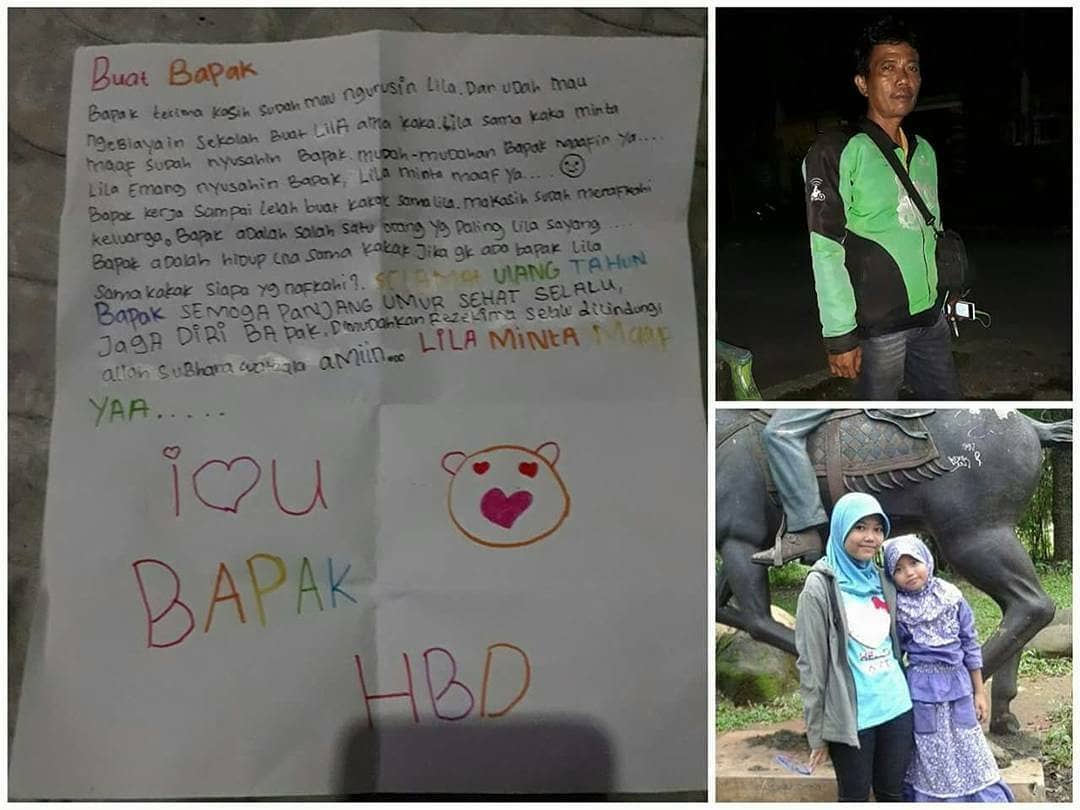 Buat Bapak
Bapak terima kasih sudah mau ngurusin Lila. Dan udah mau
ngebiayain Sekolah Buat LilA ama kaka. Lila sama kaka minta
maaf sudah nyusahin Bapak. mudah-mudahan Bapak maafin ya....
Lila Emang nyusahin Bapak, Lila minta maaf ya....
Bapak kerja Sampai lelah buat kakak sama lila. makasih sudah menafkahi
keluarga. Bapak adalah salah satu orang yg paling Lila sayang.....
Bapak adalah hidup Lila sama kakak Jika gk ada bapak Lila
Sama kakak siapa yg nafkahi?. SELAMAT ULANG TAHUN
Bapak SEMOGA PANJANG UMUR SEHAT SELALU,
JAGA DIRI BApak. Dimudahkan Rezekinya Selalu dilindungi
allah SuBhana wata'ala amiin... LILA MINTA Maaf
YAA.....
i U
BAPAK
HBD